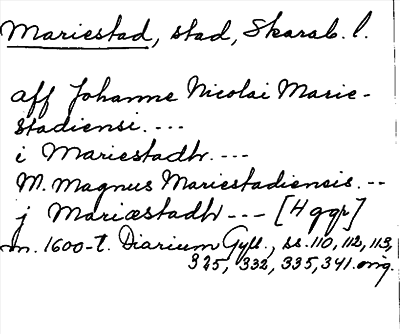 Mariestad, stad, Skarab. l.
aff Johanne Nicolai Marie-
stadiensi. ---
i Mariestadh. ---
M. Magnus Mariestadiensis. --
j Mariæstadh --- [4 ggr]
m. 1600-t. Diarium Gyll., ss. 110, 112, 113,
325, 332, 335, 341. orig.